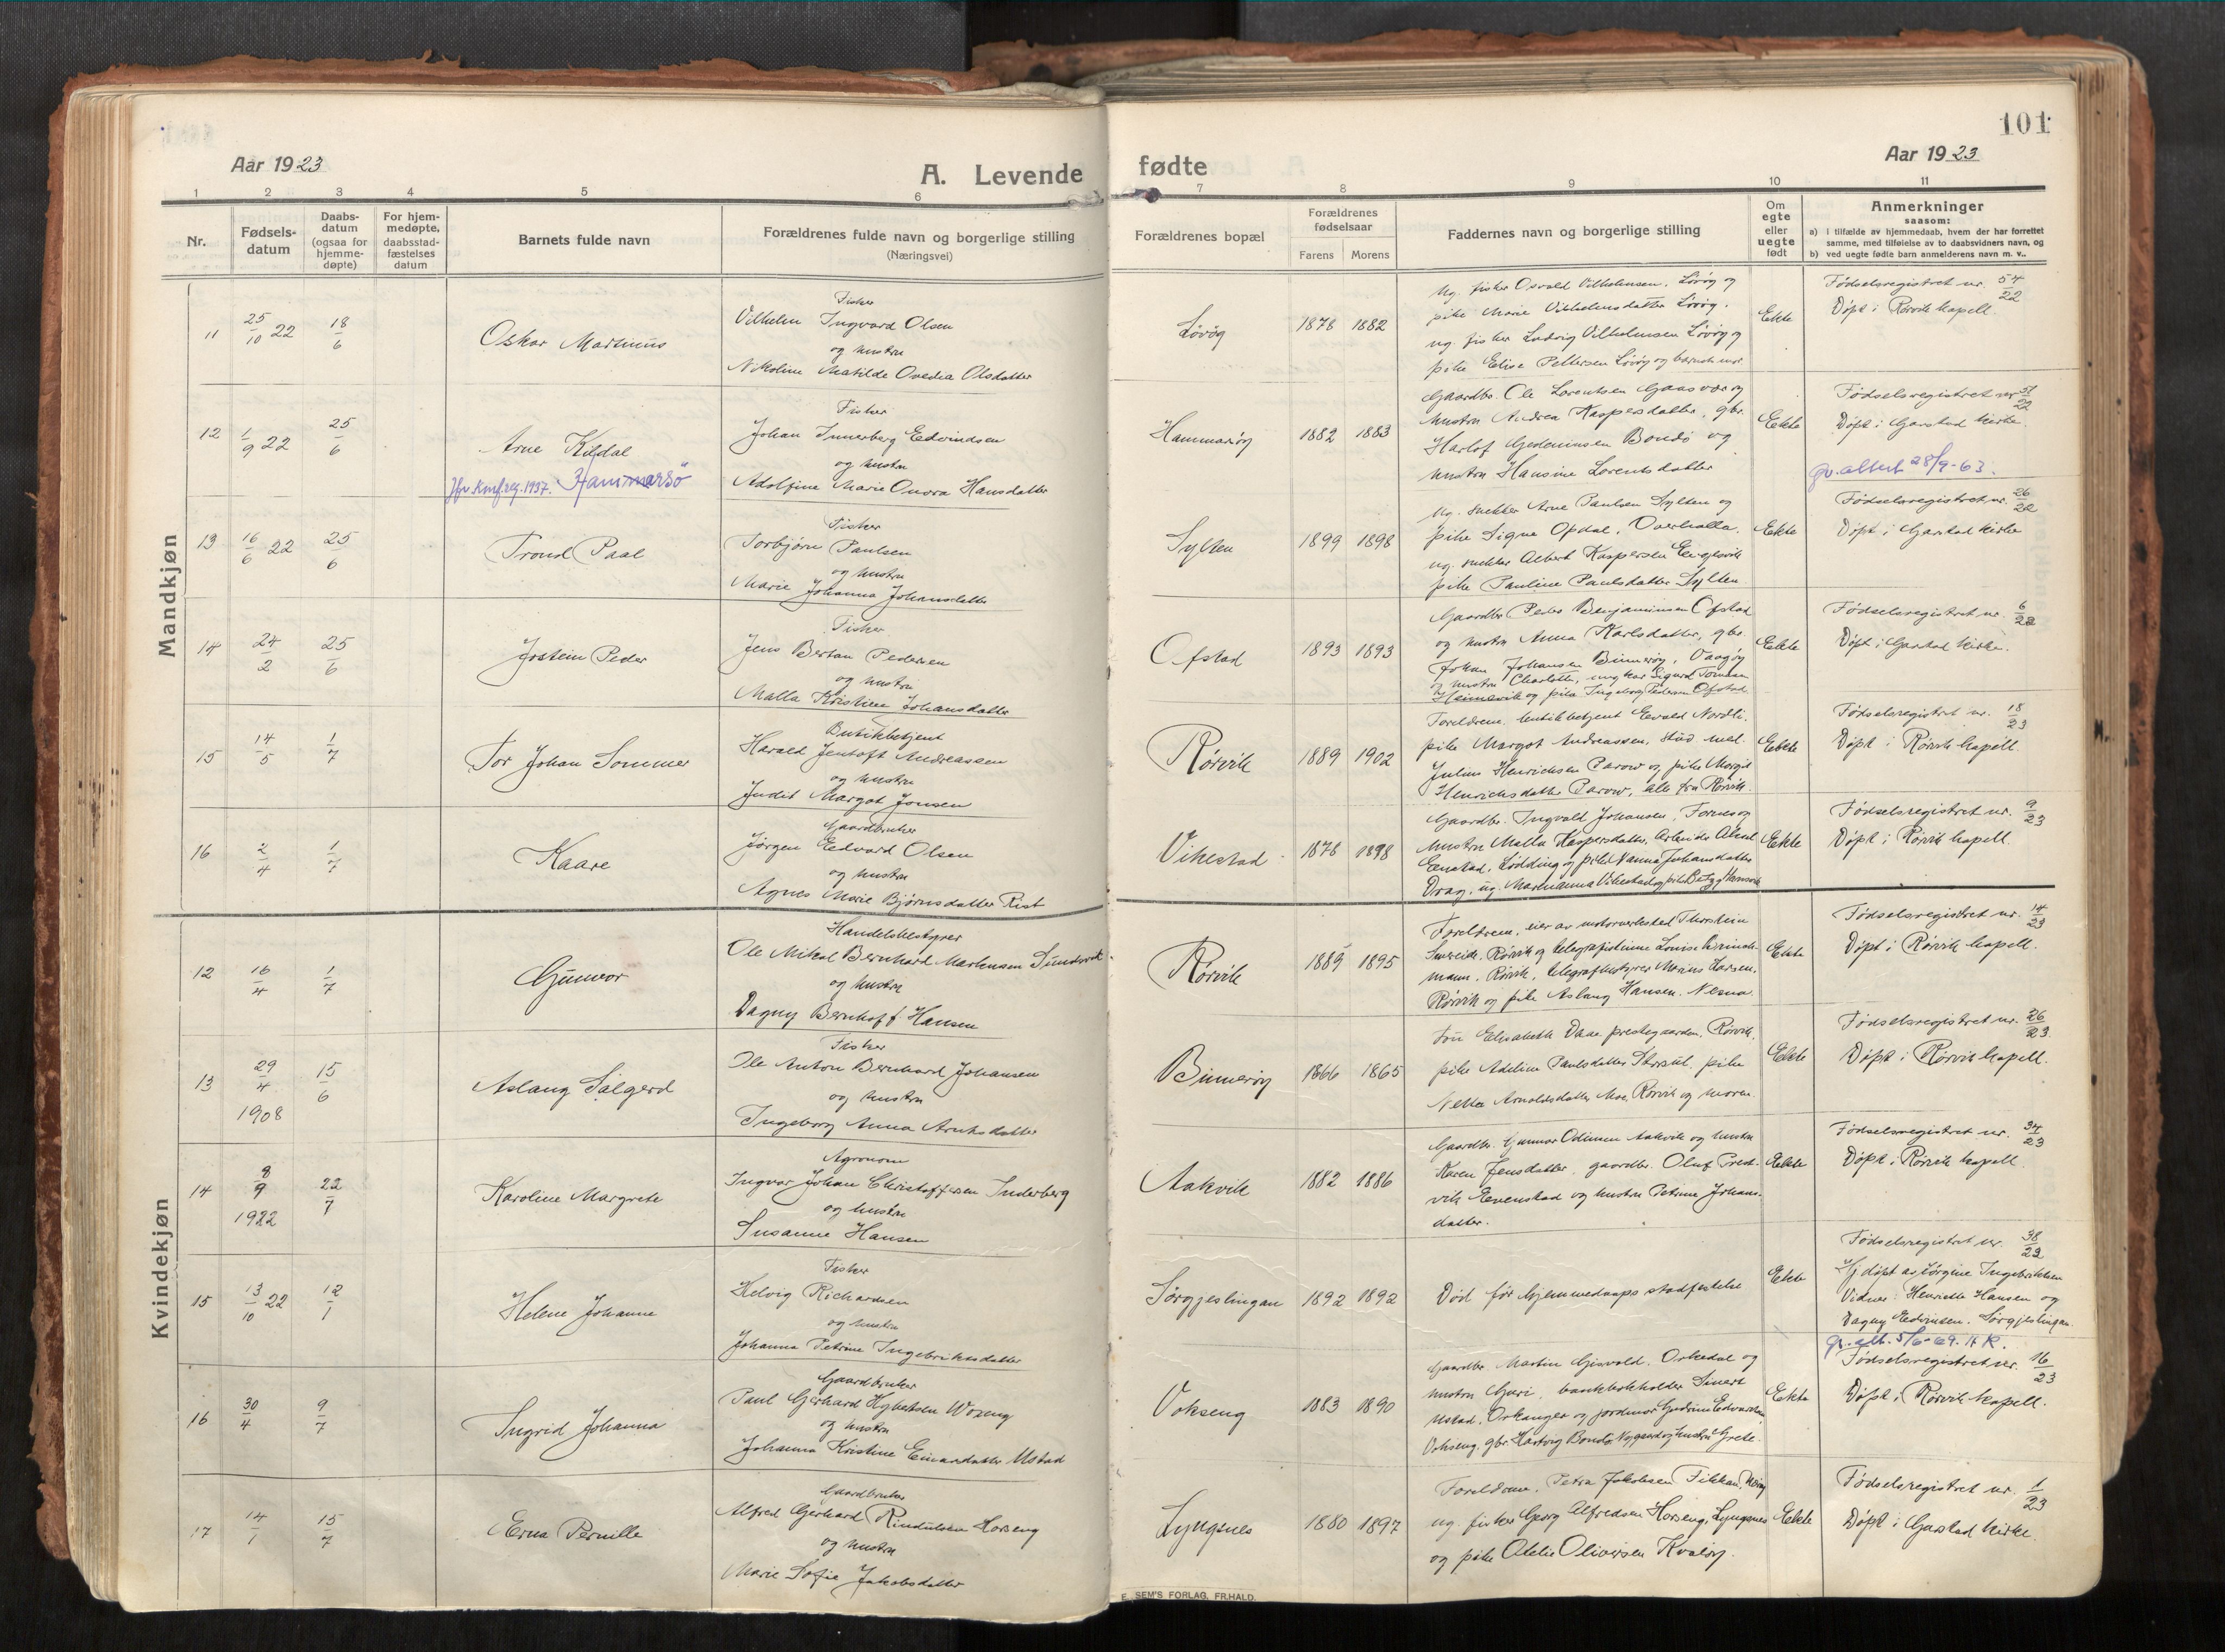 101
Aar 1923
A. Levende
fødte
Aar 1923
1 2 3 4 5 6
7 8 9 10 11
Nr.
Fødsels-
datum
Daabs-
datum
(ogsaa for
hjemme-
døpte)
For hjem-
medøpte,
daabsstad-
fæstelses
datum
Barnets fulde navn
Forældrenes fulde navn og borgerlige stilling
(Næringsvei)
Forældrenes bopæl
Forældrenes
fødselsaar
Farens Morens
Faddernes navn og borgerlige stilling
Om
egte
eller
uegte
født
Anmerkninger
saasom:
a) i tilfælde av hjemmedaab, hvem der har forrettet
samme, med tilføielse av to daabsvidners navn, og
b) ved uegte fødte barn anmelderens navn m. v..
Mandkjøn
11 25/10 22 18/6
Oskar Martinus
Fisker
Vilhelm Ingvard Olsen
og hustru
Nikoline Matilde Ovedia Olsdatter
Lövög 1878 1882
Ug. fisker Osvald Vilhelmsen, Lövög og
pike Marie Vilhelmsdatter Lövög,
ug. fisker Ludvig Vilhelmsen Lövög og
pike Elise Pettersen Lövög og barnets mor
Ekte
Födselsregistret nr. 54/22
Döpt i Rörvik kapell.
12 1/9 22 25/6
Arne Kildal
Jfr. Konf.reg. 1937. Hammarsö
Fisker
Johan Innerberg Edvindsen
og hustru
Adolfine Marie Onora Hansdatter
Hammaröy 1882 1883
Gaardbr. Ole Lorentsen Gaasvær og
hustru Andrea Kaspersdatter, gbr.
Harlof Gedeonsen Bondö og
hustru Hansine Lorentsdatter
Ekte
Födselsregistret nr 51/22
Döpt i Garstad kirke.
gv. attest 28/9-63.
13 16/6 22 25/6
Trond Paal
Fisker
Torbjörn Paulsen
og hustru
Marie Johanna Johansdatter
Sylten 1899 1898
Ug. snekker Arne Paulsen Sylten og
pike Signe Opdal, Overhalla.
ug. snekker Albert Kaspersen
pike Pauline Paulsdatter Sylten
Ekte
Födselsregistret nr. 26/22
Döpt i Garstad kirke
14 24/2 25/6
Jostein Peder
Fisker
Jens Bertan Pedersen
og hustru
Malla Kristine Johansdatter
Ofstad 1893 1893
Gaardbr. Peder Benjaminsen Ofstad
og hustru Anna Karlsdatter, gbr.
Johan Johansen Binneröy, Vaagöy
og hustru Charlotte, ungkar Sigurd Tomasen
Heimevik og pike Ingeborg Pedersen Ofstad
Ekte
Födselsregistret nr. 6/22
Döpt i Garstad kirke.
15 14/5 1/7
Tor Johan Sommer
Butikbetjent
Harald Jentoft Andreassen
og hustru
Judit Margot Jonsen
Rörvik 1889 1902
Foreldrene, butikbetjent Evald Nordli,
pike Margot Andreassen, stud. med.
Julius Henrichsen Parow og pike Margit
Henrichsdatter Parow, alle fra Rörvik.
Ekte
Födselsregistret nr. 18/23
Döpt i Rörvik kapell.
16 2/4 1/7
Kaare
Gaardbruker
Jörgen Edvard Olsen
og hustru
Agnes Marie Björnsdatter Rist
Vikestad 1878 1898
Gaardbr. Ingvald Johansen, Fornes og
hustru Malla Kaspersdatter, Arbeider Aksel
Evenstad, Lödding og pike Nanna Johansdatter
Drag, ug. Marianna Vikestad og pike
Ekte
Födselsregistret nr. 9/23
Döpt i Rörvik kapell.
Kvindekjøn
12 16/4 1/7
Gunvor
Handelsbestyrer
Ole Mikal Bernhard Markusen Sundsvik
og hustru
Dagny Bernhoff Hansen
Rörvik 1889 1895
Foreldrene, eier av motorverksted Thorstein
Smevik. Rörvik og telegrafistinne Louise Brinch-
mann, Rörvik, telegrafbestyrer Marius Larsen,
Rörvik og pike Aslaug Hansen. Nesna.
Ekte
Födselsregistret nr. 14/23
Döpt i Rörvik kapell.
13 29/4 1908 15/6
Aslaug Salgerd
Fisker
Ole Anton Bernhard Johansen
og hustru
Ingeborg Anna Arntsdatter
Binneröy 1866 1865
Fru Elisabeth Daae prestegaarden, Rörvik,
pike Adeline Paulsdatter, pike
Netta Arnoldsdatter Moe, Rörvik og moren.
Ekte
Födselsregistret nr. 26/23
Döpt i Rörvik kapell.
14 8/9 1922 22/7
Karoline Margrete
Agronom
Ingvar Johan Christoffersen Inderberg
og hustru
Susanne Hansen
Aakvik 1882 1886
Gaardbr. Gunnar Odinsen Aakvik og hustru
Karen Jensdatter, gaardbr. Oluf Prest-
vik Evenstad og hustru Petrine Johans-
datter.
Ekte
Födselsregistret nr. 34/23
Döpt i Rörvik kapell.
15 13/10 22 12/1
Helene Johanne
Fisker
Helvig Richardsen
og hustru
Johanna Petrine Ingebriktsdatter
Sörgjeslingan 1892 1892
Död för hjemmedaaps stadfestelse
Ekte
Födselsregistret nr. 38/22
Hj.döpt av Jörgine Ingebriktsen
Vidner: Henriette Hansen og
Dagny Edvinsen. Sörgjeslingan.
gv. att. 5/6-69. H R.
16 30/4 9/7
Ingrid Johanna
Gaardbruker
Paul Gerhard Woxeng
og hustru
Johanna Kristine Einarsdatter Ustad
Vokseng 1883 1890
Gaardbr. Martin Gisvold, Orkedal og
hustru Guri, bankbokholder Sivert
Ustad, Orkanger og jordmor Gudrun Edvardsen
Vokseng, gbr. Hartvig Bondö, Nygaard og hustru Grete.
Ekte
Födselsregistret nr. 16/23
Döpt i Rörvik kapell.
17 14/1 15/7
Erna Pernille
Gaardbruker
Alfred Gerhard Rindulsen Horseng
og hustru
Marie Sofie Jakobsdatter
Lyngsnes 1880 1897
Foreldrene, Petra Jakobsen Fikkan,
ug. fisker Georg Alfredsen Horseng, Lyngsnes
og pike Atelie Oliversen Kvalöy.
Ekte
Födselsregistret nr. 1/23
Döpt i Garstad kirke.
E. SEM'S FORLAG, FR.HALD.